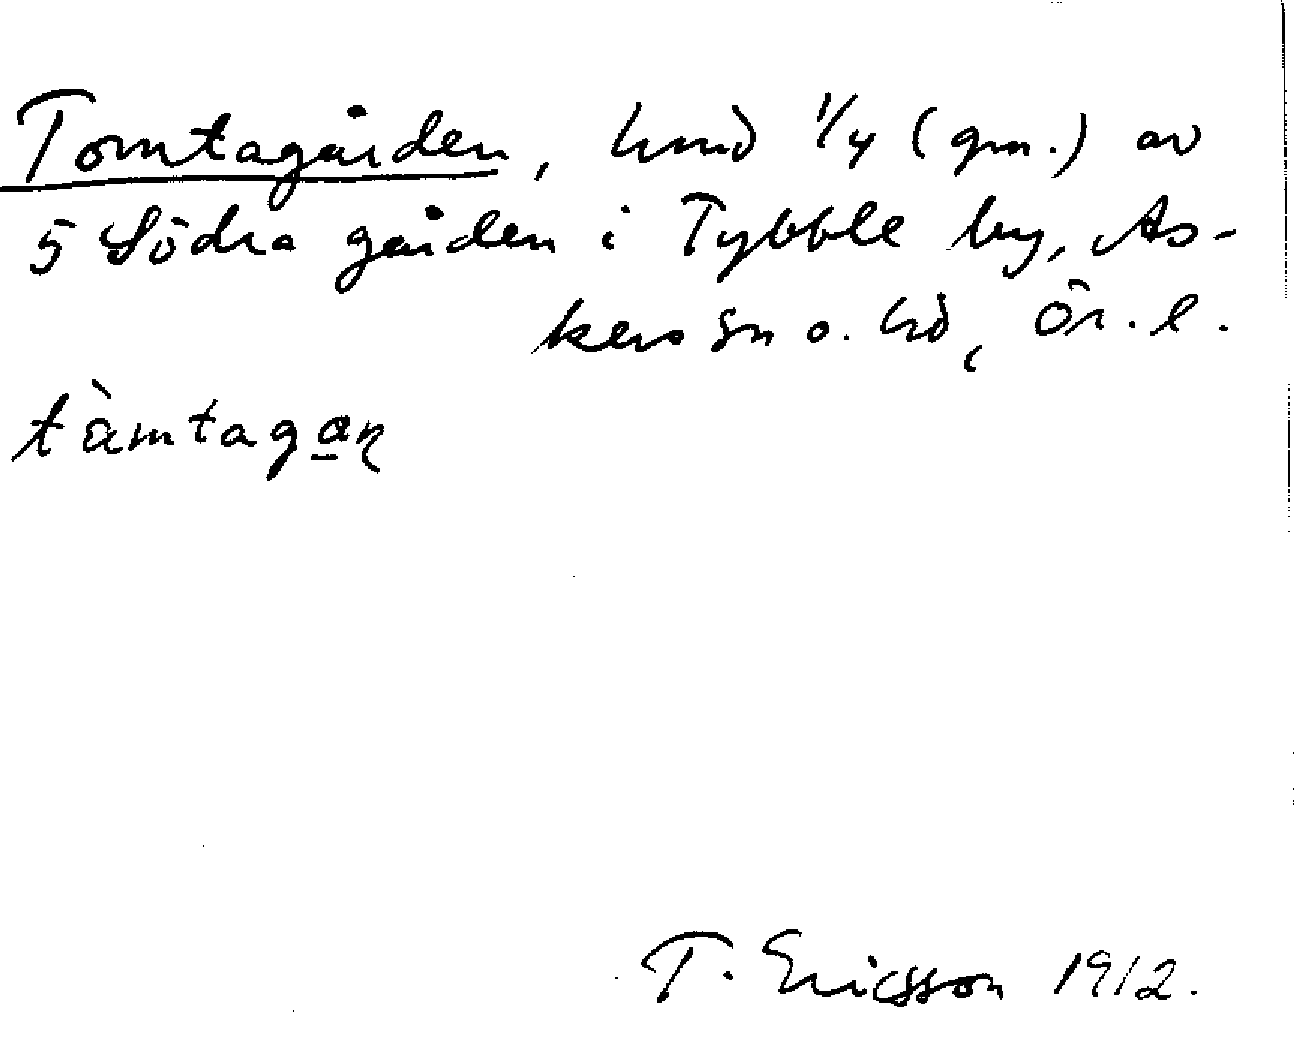 Tomtagården, hmd 1/4 (gm.) av
5 Södra gården i Tybble by, As-
kers sn o. hd, Ör. l.
tàmtagaɳ
T. Ericsson 1912.